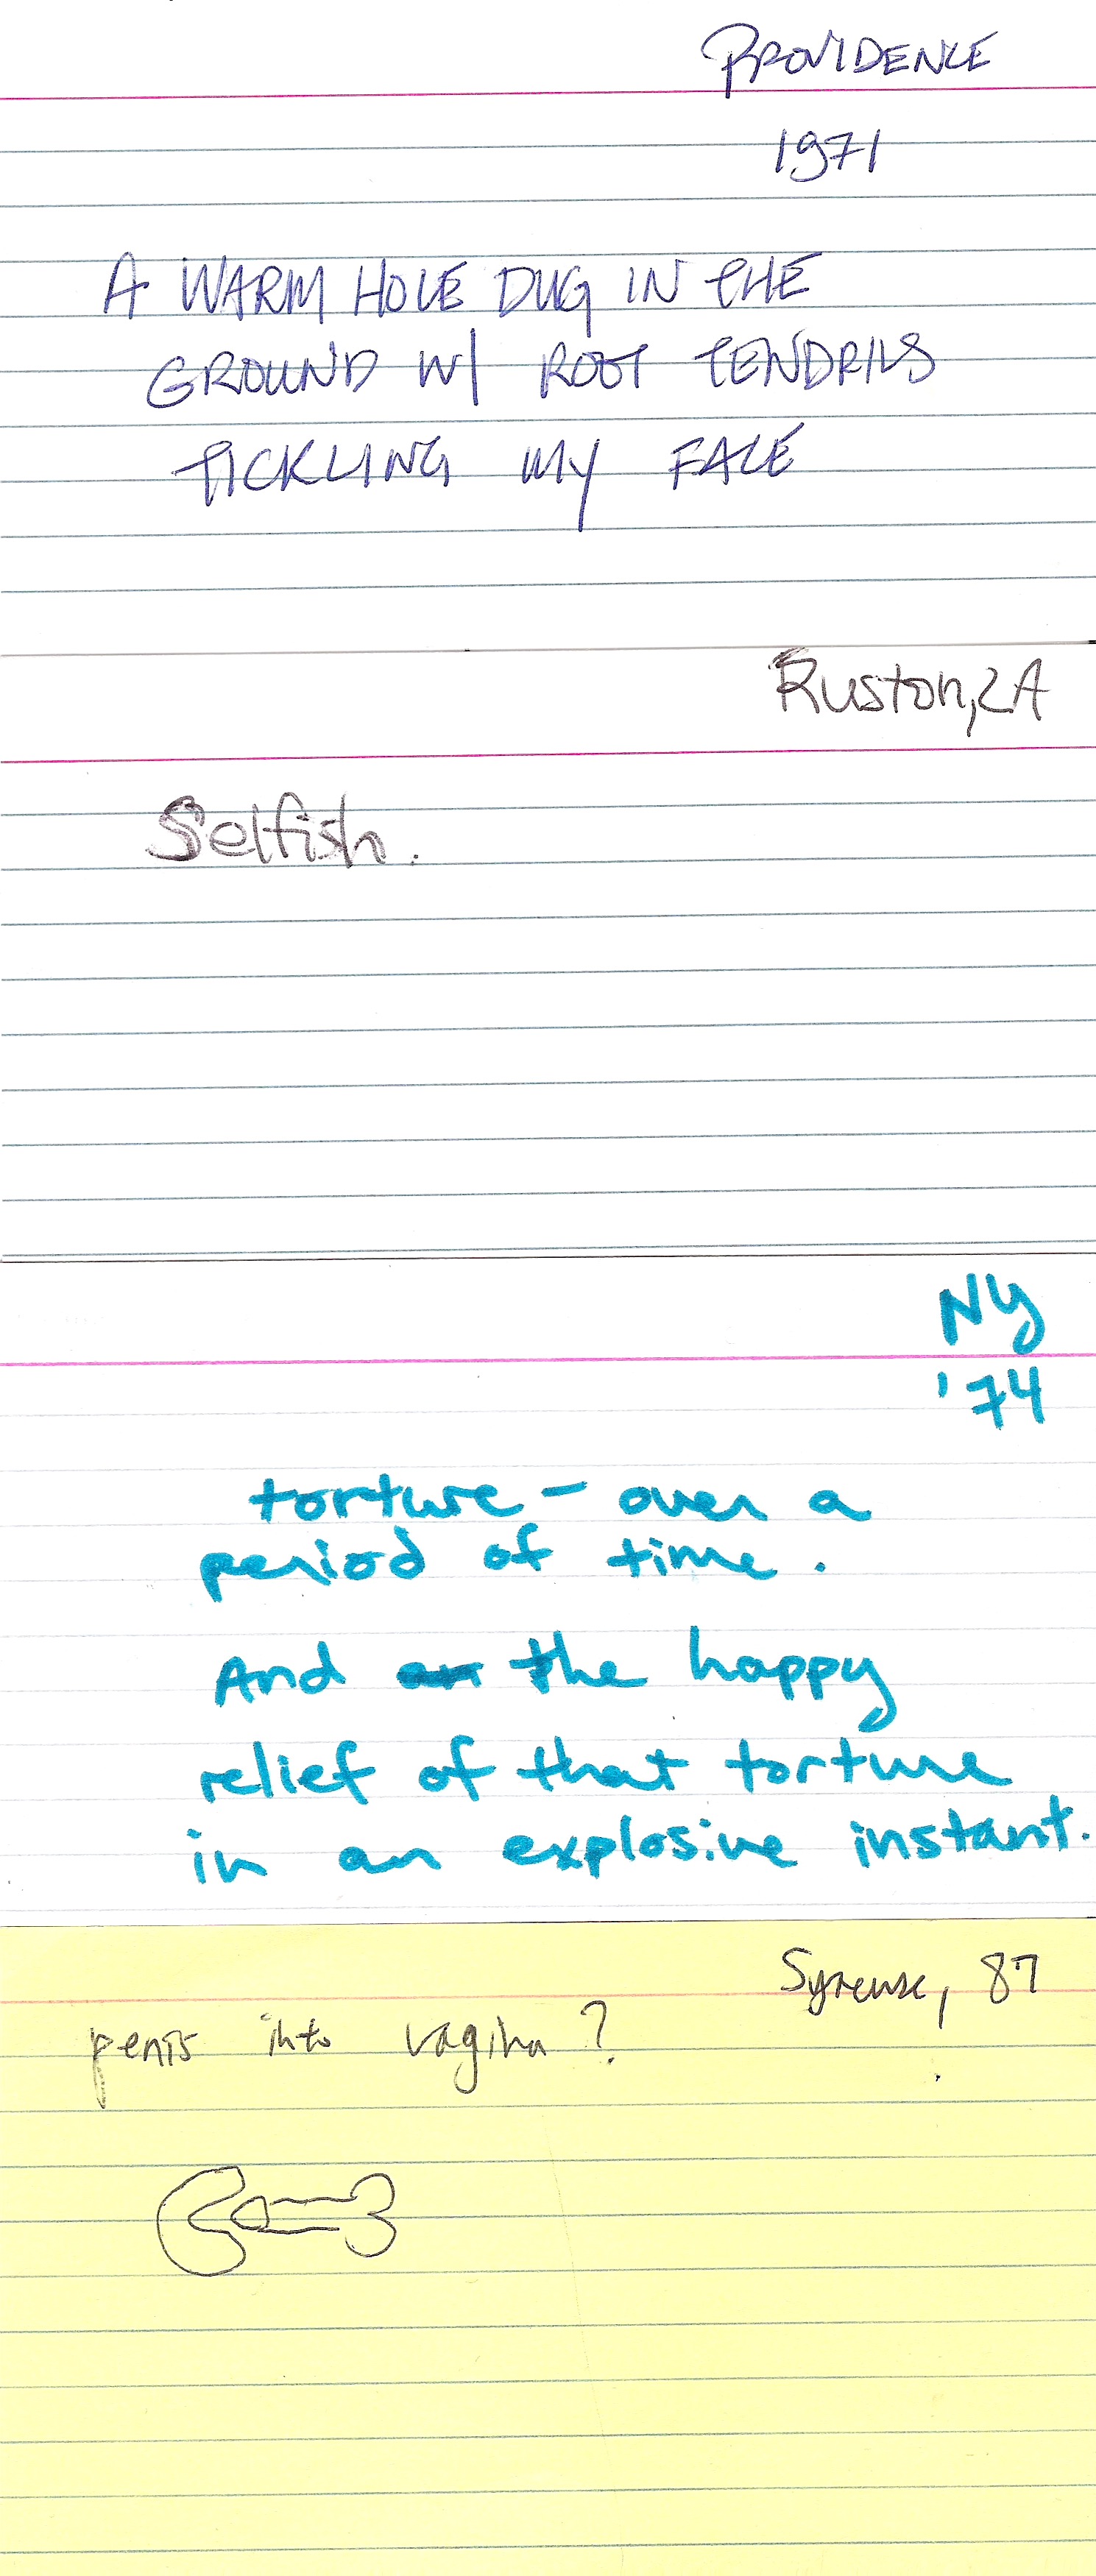 PROVIDENCE
1971
A WARM HOLE DUG IN THE
GROUND W/ ROOT TENDRILS
TICKLING MY FACE
Ruston, LA
Selfish.
NY
'74
torture - over a
period of time.
And the happy
relief of that torture
in an explosive instant.
Syracuse, 87
penis into vagina?